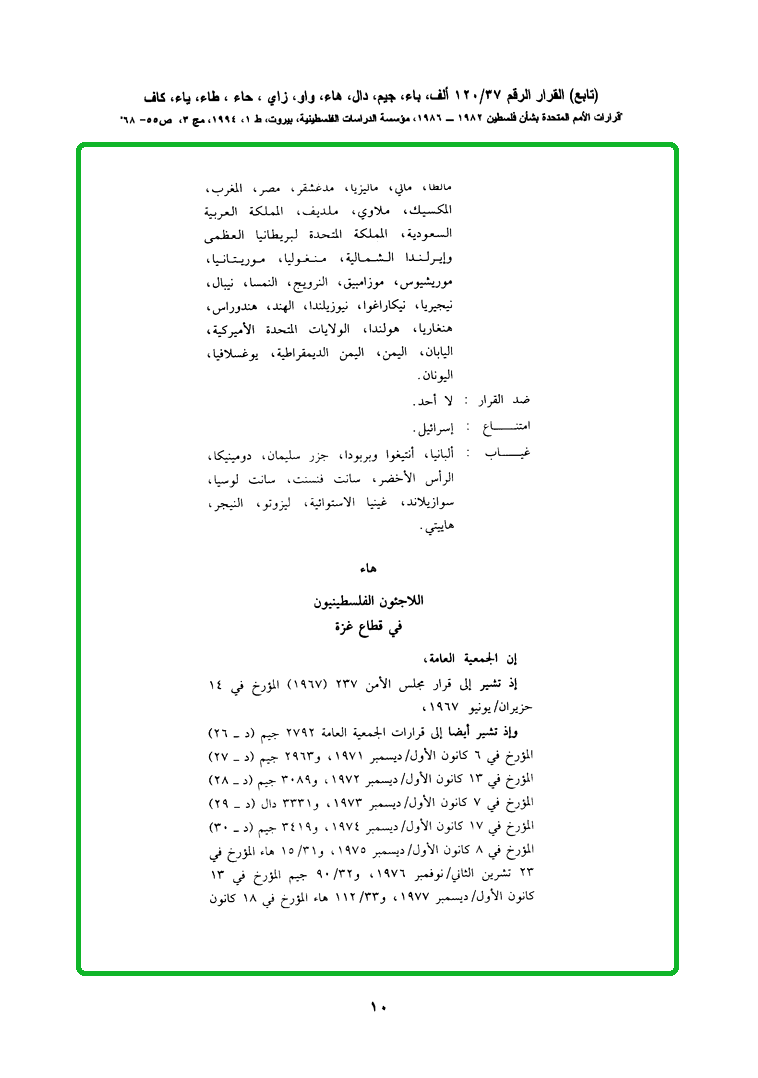 (تابع) القرار الرقم ١٢٠/٣٧ ألف، باء، جيم، دال، هاء، واو، زاي ، حاء ، طاء، ياء، كاف
"قرارات الأمم المتحدة بشأن فلسطين ١٩٨٢ ــ ١٩٨٦، مؤسسة الدراسات الفلسطينية، بيروت، ط ١، ١٩٩٤، مج ٣، ص٥٥- ٦٨"
مالطا، مالي، ماليزيا، مدغشقر، مصر، المغرب،
المكسيك، ملاوي، ملديف، المملكة العربية
السعودية، المملكة المتحدة لبريطانيا العظمى
وإيرلندا الشمالية، منغوليا، موريتانيا،
موريشيوس، موزامبيق، النرويج، النمسا، نيبال،
نيجيريا، نيكاراغوا، نيوزيلندا، الهند، هندوراس،
هنغاريا، هولندا، الولايات المتحدة الأميركية،
اليابان، اليمن، اليمن الديمقراطية، يوغسلافيا،
اليونان.
ضد القرار : لا أحد.
امتنــــاع : إسرائيل.
غيــــاب : ألبانيا، أنتيغوا وبربودا، جزر سليمان، دومينيكا،
الرأس الأخضر، سانت فنسنت، سانت لوسيا،
سوازيلاند، غينيا الاستوائية، ليزوتو، النيجر،
هاييتي.
هاء
اللاجئون الفلسطينيون
في قطاع غزة
إن الجمعية العامة،
إذ تشير إلى قرار مجلس الأمن ٢٣٧ (١٩٦٧) المؤرخ في ١٤
حزيران/يونيو ١٩٦٧،
وإذ تشير أيضا إلى قرارات الجمعية العامة ٢٧٩٢ جيم (د ـ ٢٦)
المؤرخ في ٦ كانون الأول/ديسمبر ١٩٧١، و٢٩٦٣ جيم (د ـ ٢٧)
المؤرخ في ١٣ كانون الأول/ديسمبر ١٩٧٢، و٣٠٨٩ جيم (د ـ ٢٨)
المؤرخ في ٧ كانون الأول/ديسمبر ١٩٧٣، و٣٣٣١ دال (د ـ ٢٩)
المؤرخ في ١٧ كانون الأول/ديسمبر ١٩٧٤، و٣٤١٩ جيم (د ـ ٣٠)
المؤرخ في ٨ كانون الأول/ديسمبر ١٩٧٥، و١٥/٣١ هاء المؤرخ في
٢٣ تشرين الثاني/نوفمبر ١٩٧٦، و٩٠/٣٢ جيم المؤرخ في ١٣
كانون الأول/ديسمبر ١٩٧٧، و١١٢/٣٣ هاء المؤرخ في ١٨ كانون
١٠